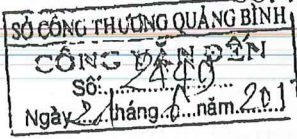 SỞ CÔNG THƯƠNG QUẢNG BÌNH
CÔNG VĂN ĐẾN
Số: 2449
Ngày 21 tháng 6 năm 201